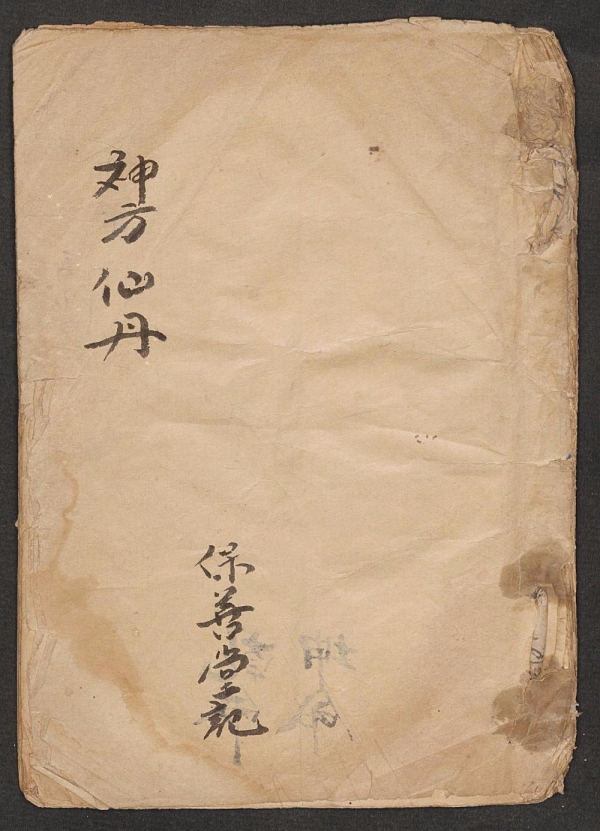 神方仙丹
保善堂記